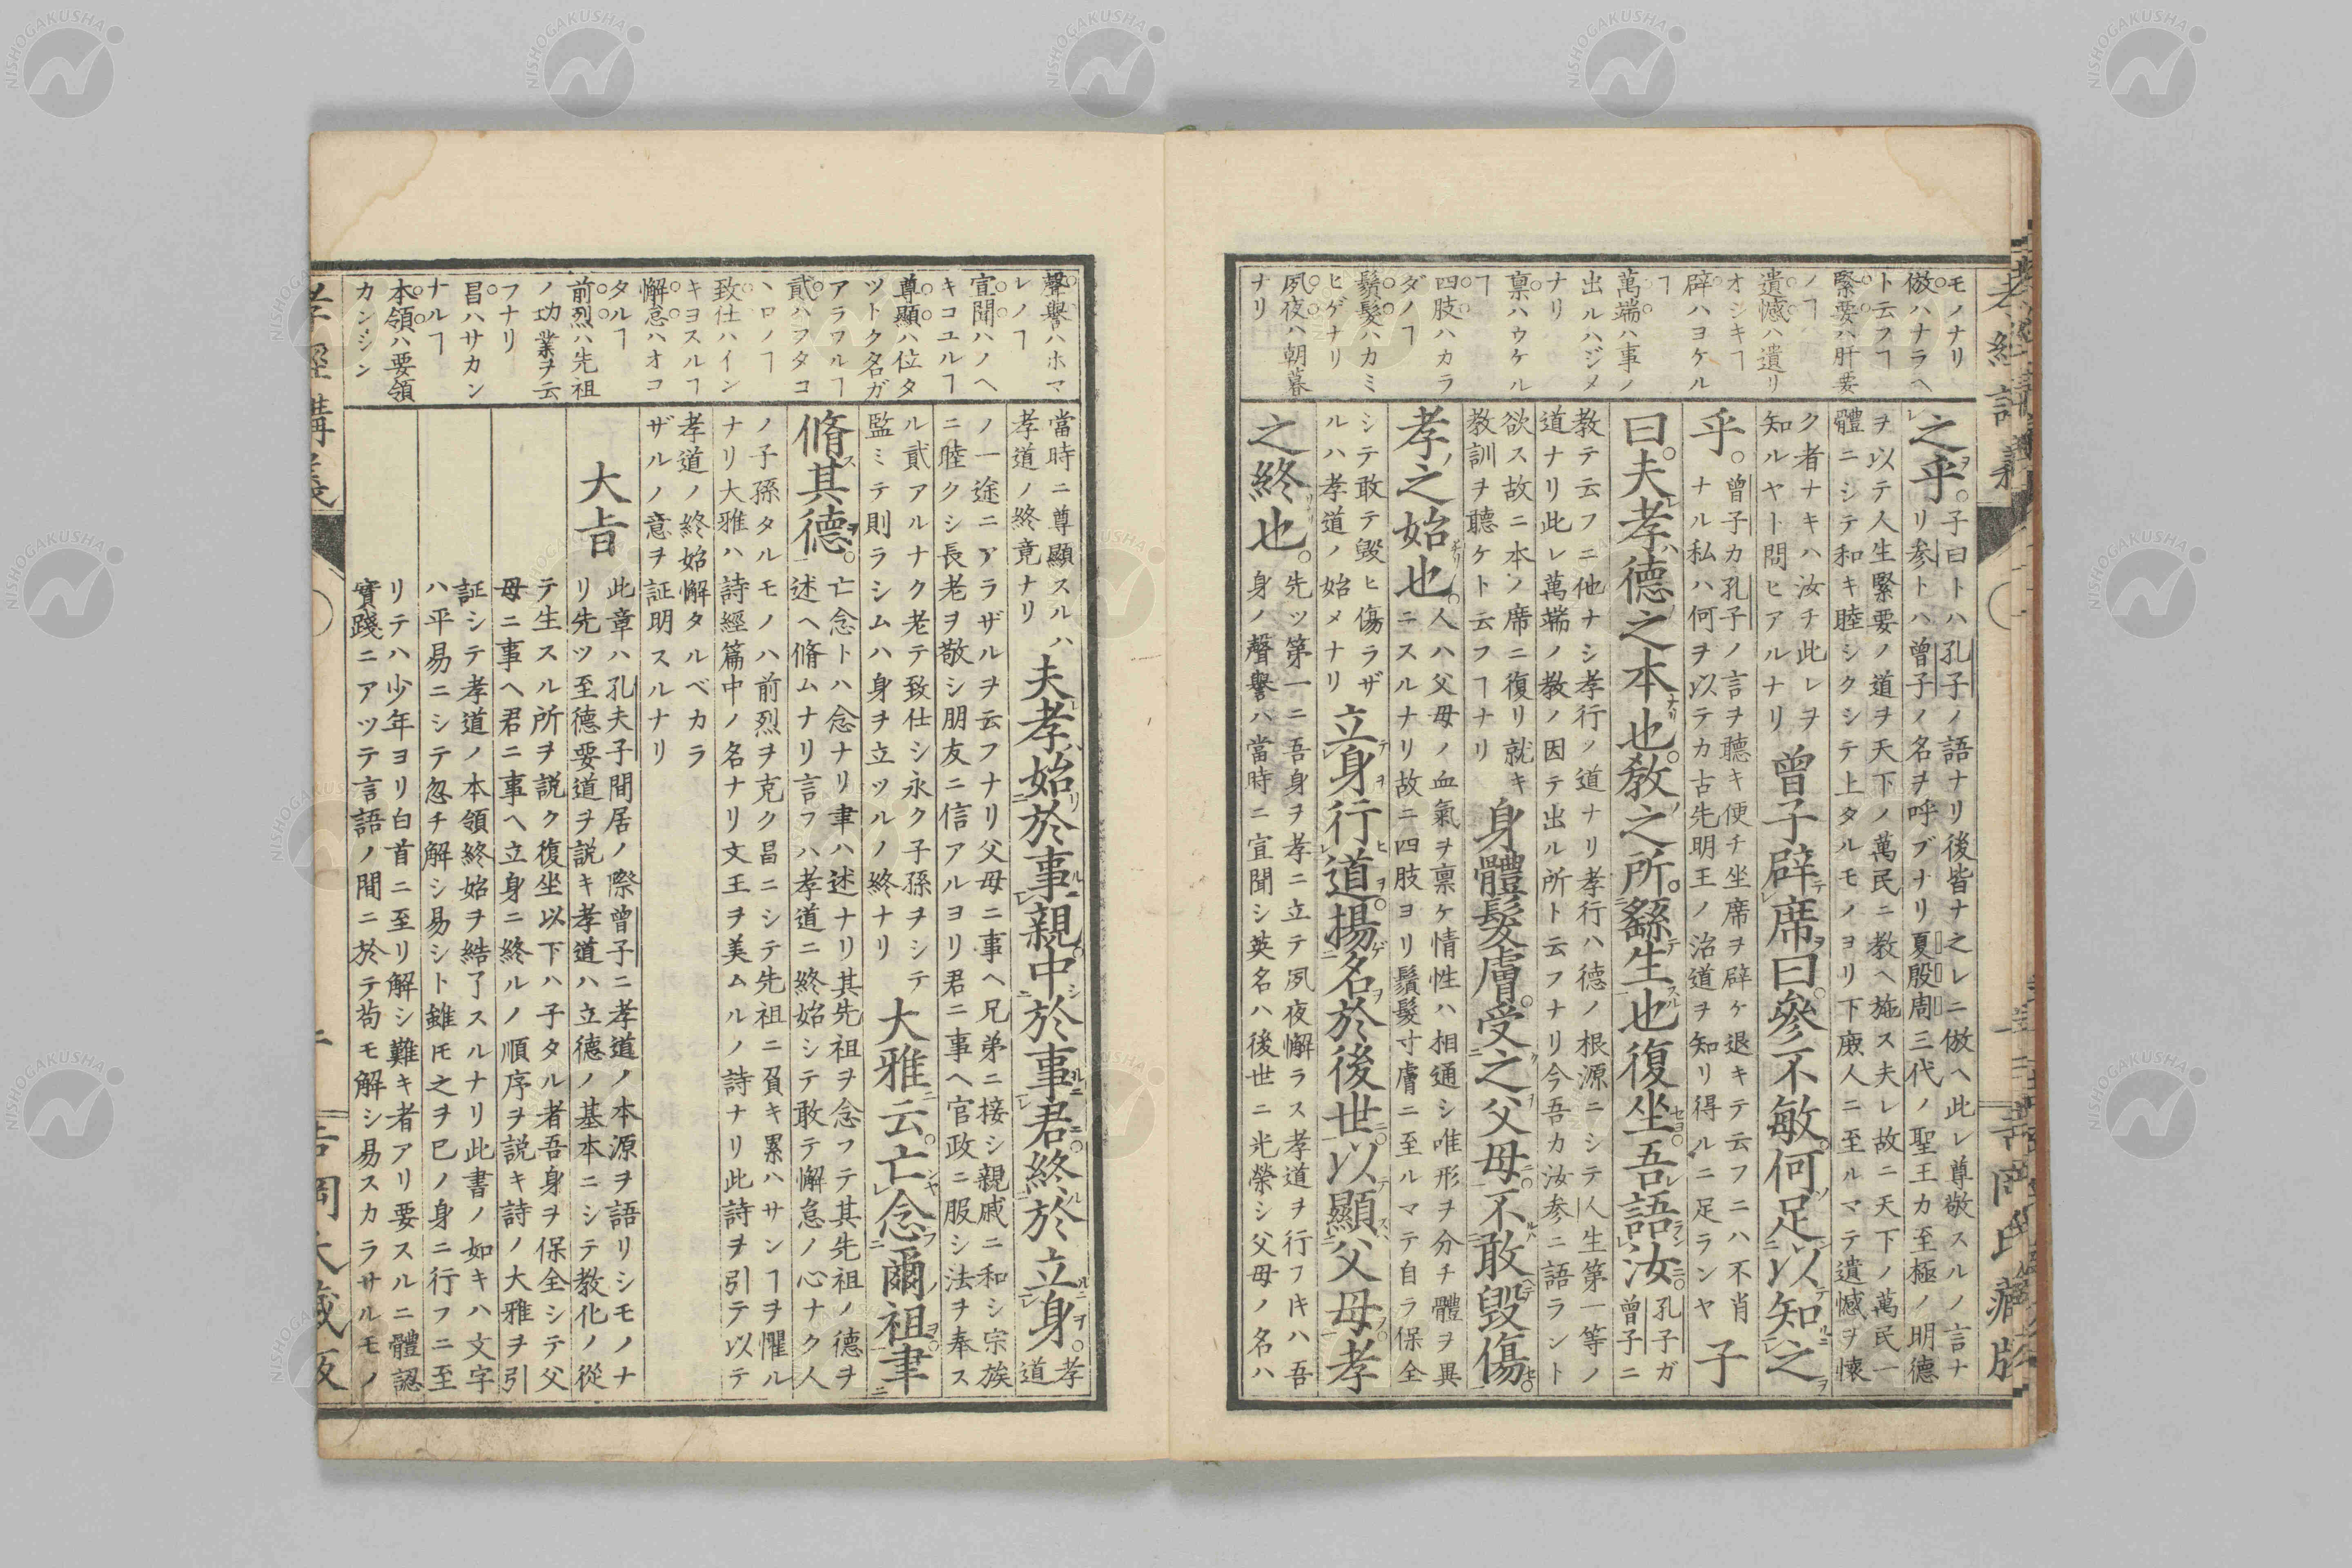 モノナリ
倣ハナラヘ
ト云フヿ
緊要ハ肝要
ノヿ
遺憾ハ遺リ
オシキヿ
辟ハヨケル
ヿ
萬端ハ事ノ
出ルハジメ
ナリ
禀ハウケル
ヿ
四肢ハカラ
ダノヿ
鬚髮ハカミ
ヒゲナリ
夙夜ハ朝暮
ナリ
之乎。子曰トハ孔子ノ語ナリ後皆ナ之レニ倣ヘ此レ尊敬スルノ言ナ
リ参トハ曾子ノ名ヲ呼ブナリ夏殷周三代ノ聖王カ至極ノ明德
ヲ以テ人生緊要ノ道ヲ天下ノ萬民ニ教ヘ施ス夫レ故ニ天下ノ萬民一
體ニシテ和キ睦シクシテ上タルモノヨリ下庶人ニ至ルマテ遺憾ヲ懷
ク者ナキハ汝チ此レヲ
知ルヤト問ヒアルナリ
曾子辟席曰參不敏何足以知之
乎。曾子カ孔子ノ言ヲ聽キ便チ坐席ヲ辟ケ退キテ云フニハ不肖
ナル私ハ何ヲ以テカ古先明王ノ治道ヲ知リ得ルニ足ランヤ
子
曰。夫孝德之本也。教之所。繇生也復坐吾語汝
孔子ガ
曾子ニ
教テ云フニ他ナシ孝行ノ道ナリ孝行ハ德ノ根源ニシテ人生第一等ノ
道ナリ此レ萬端ノ教ノ因テ出ル所ト云フナリ今吾カ汝参ニ語ラント
欲ス故ニ本ノ席ニ復リ就キ
教訓ヲ聽ケト云フヿナリ
身體髮膚。受之父母不敢毀傷
孝之始也。人ハ父母ノ血氣ヲ禀ケ情性ハ相通シ唯形ヲ分チ體ヲ異
ニスルナリ故ニ四肢ヨリ鬚髮寸膚ニ至ルマテ自ラ保全
シテ敢テ毀ヒ傷ラザ
ルハ孝道ノ始メナリ
立身行道。揚名於後世以顯父母孝
之終也。先ッ第一ニ吾身ヲ孝ニ立テ夙夜懈ラス孝道ヲ行フキハ吾
身ノ聲譽ハ當時ニ宣聞シ英名ハ後世ニ光榮シ父母ノ名ハ
聲譽ハホマ
レノヿ
宣聞ハノヘ
キコユルヿ
尊顯ハ位タ
ツトク名ガ
アラワルヿ
貳ハフタコ
ヽロノヿ
致仕ハイン
キヨスルヿ
懈怠ハオコ
タルヿ
前烈ハ先祖
ノ功業ヲ云
フナリ
昌ハサカン
ナルヿ
本領ハ要領
カンジン
當時ニ尊顯スルハ
孝道ノ終竟ナリ
夫孝始於事親中於事君終於立身。
孝
道
ノ一途ニアラザルヲ云フナリ父母ニ事ヘ兄弟ニ接シ親戚ニ和シ宗族
ニ睦クシ長老ヲ敬シ朋友ニ信アルヨリ君ニ事ヘ官政ニ服シ法ヲ奉ス
ル貳アルナク老テ致仕シ永ク子孫ヲシテ
監ミテ則ラシムハ身ヲ立ツルノ終ナリ
大雅云。亡念爾祖聿
脩其德。亡念トハ念ナリ聿ハ述ナリ其先祖ヲ念フテ其先祖ノ德ヲ
述ヘ脩ムナリ言フハ孝道ニ終始シテ敢テ懈怠ノ心ナク人
ノ子孫タルモノハ前烈ヲ克ク昌ニシテ先祖ニ負キ累ハサンヿヲ懼ル
ナリ大雅ハ詩經篇中ノ名ナリ文王ヲ美ムルノ詩ナリ此詩ヲ引テ以テ
孝道ノ終始懈タルベカラ
ザルノ意ヲ証明スルナリ
大旨
此章ハ孔夫子間居ノ際曾子ニ孝道ノ本源ヲ語リシモノナ
リ先ツ至德要道ヲ説キ孝道ハ立德ノ基本ニシテ教化ノ從
テ生スル所ヲ説ク復坐以下ハ子タル者吾身ヲ保全シテ父
母ニ事ヘ君ニ事ヘ立身ニ終ルノ順序ヲ説キ詩ノ大雅ヲ引
証シテ孝道ノ本領終始ヲ結了スルナリ此書ノ如キハ文字
ハ平易ニシテ忽チ解シ易シト雖𪜈之ヲ己ノ身ニ行フニ至
リテハ少年ヨリ白首ニ至リ解シ難キ者アリ要スルニ體認
實踐ニアツテ言語ノ間ニ於テ苟モ解シ易スカラサルモノ